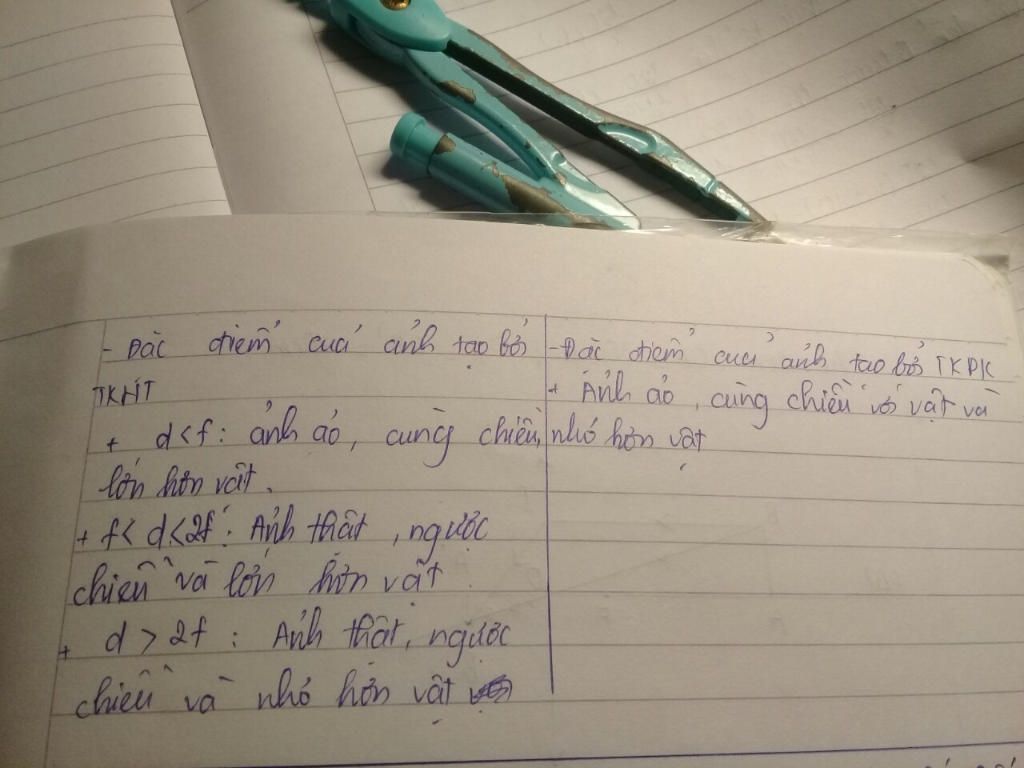 - Đặc điểm của ảnh tạo bởi
TKHT
+ d < f : ảnh ảo, cùng chiều,
lớn hơn vật.
+ f < d < 2f : Ảnh thật, ngược
chiều và lớn hơn vật
+ d > 2f : Ảnh thật, ngược
chiều và nhỏ hơn vật
- Đặc điểm của ảnh tạo bởi TKPK
+ Ảnh ảo, cùng chiều với vật và
nhỏ hơn vật